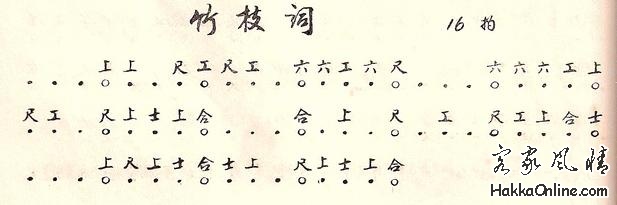 竹枝词 16拍
上上尺工尺工六六工六尺六六六工上
尺工尺上士上合合上尺工尺工上合士
上尺上士合士上尺上士上合
客家风情
HakkaOnline.com